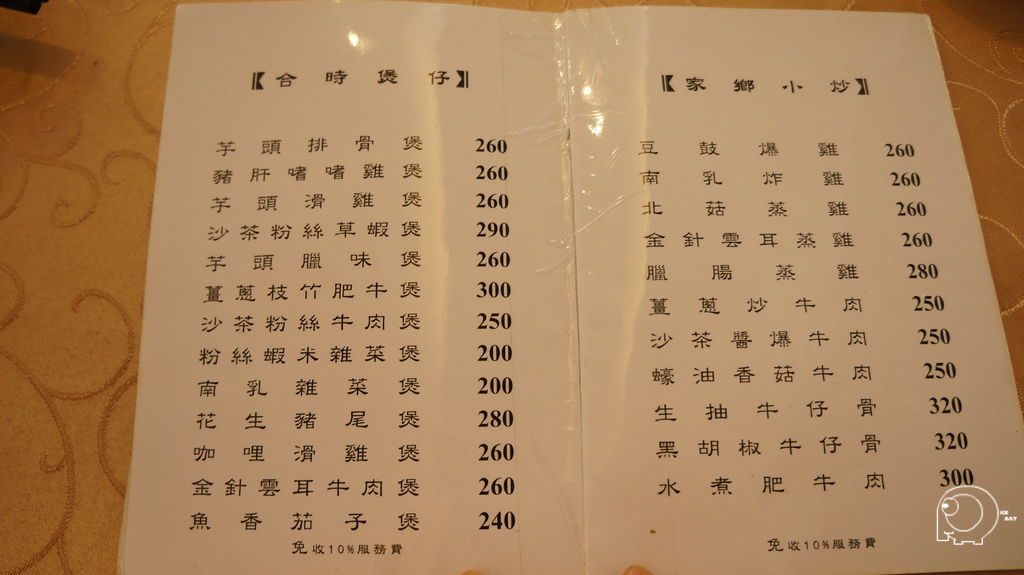 【合時煲仔】
芋頭排骨煲 260
豬肝嗜嗜雞煲 260
芋頭滑雞煲 260
沙茶粉絲草蝦煲 290
芋頭臘味煲 260
薑蔥枝竹肥牛煲 300
沙茶粉絲牛肉煲 250
粉絲蝦米雜菜煲 200
南乳雜菜煲 200
花生豬尾煲 280
咖哩滑雞煲 260
金針雲耳牛肉煲 260
魚香茄子煲 240
免收10%服務費
【家鄉小炒】
豆鼓爆雞 260
南乳炸雞 260
北菇蒸雞 260
金針雲耳蒸雞 260
臘腸蒸雞 280
薑蔥炒牛肉 250
沙茶醬爆牛肉 250
蠔油香菇牛肉 250
生抽牛仔骨 320
黑胡椒牛仔骨 320
水煮肥牛肉 300
免收10%服務費